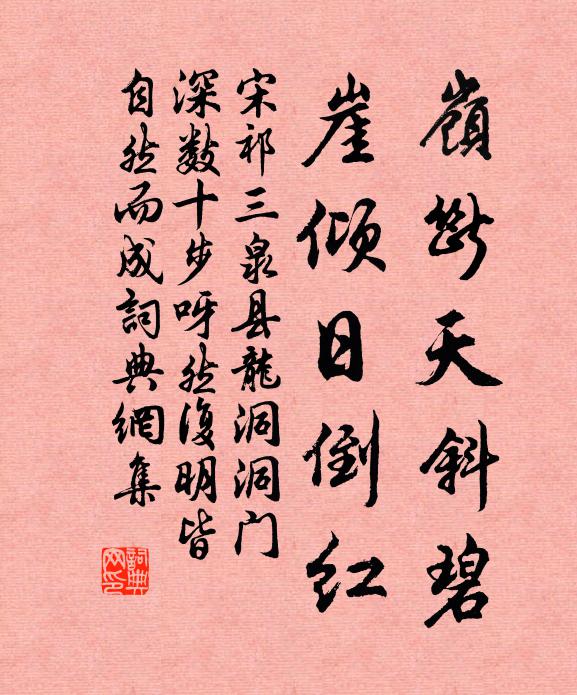 嶺斷天斜碧
崖倾日倒红
宋祁三泉县龍洞洞门
深数十步呀然復明皆
自然而成詞典網集
詞典网印